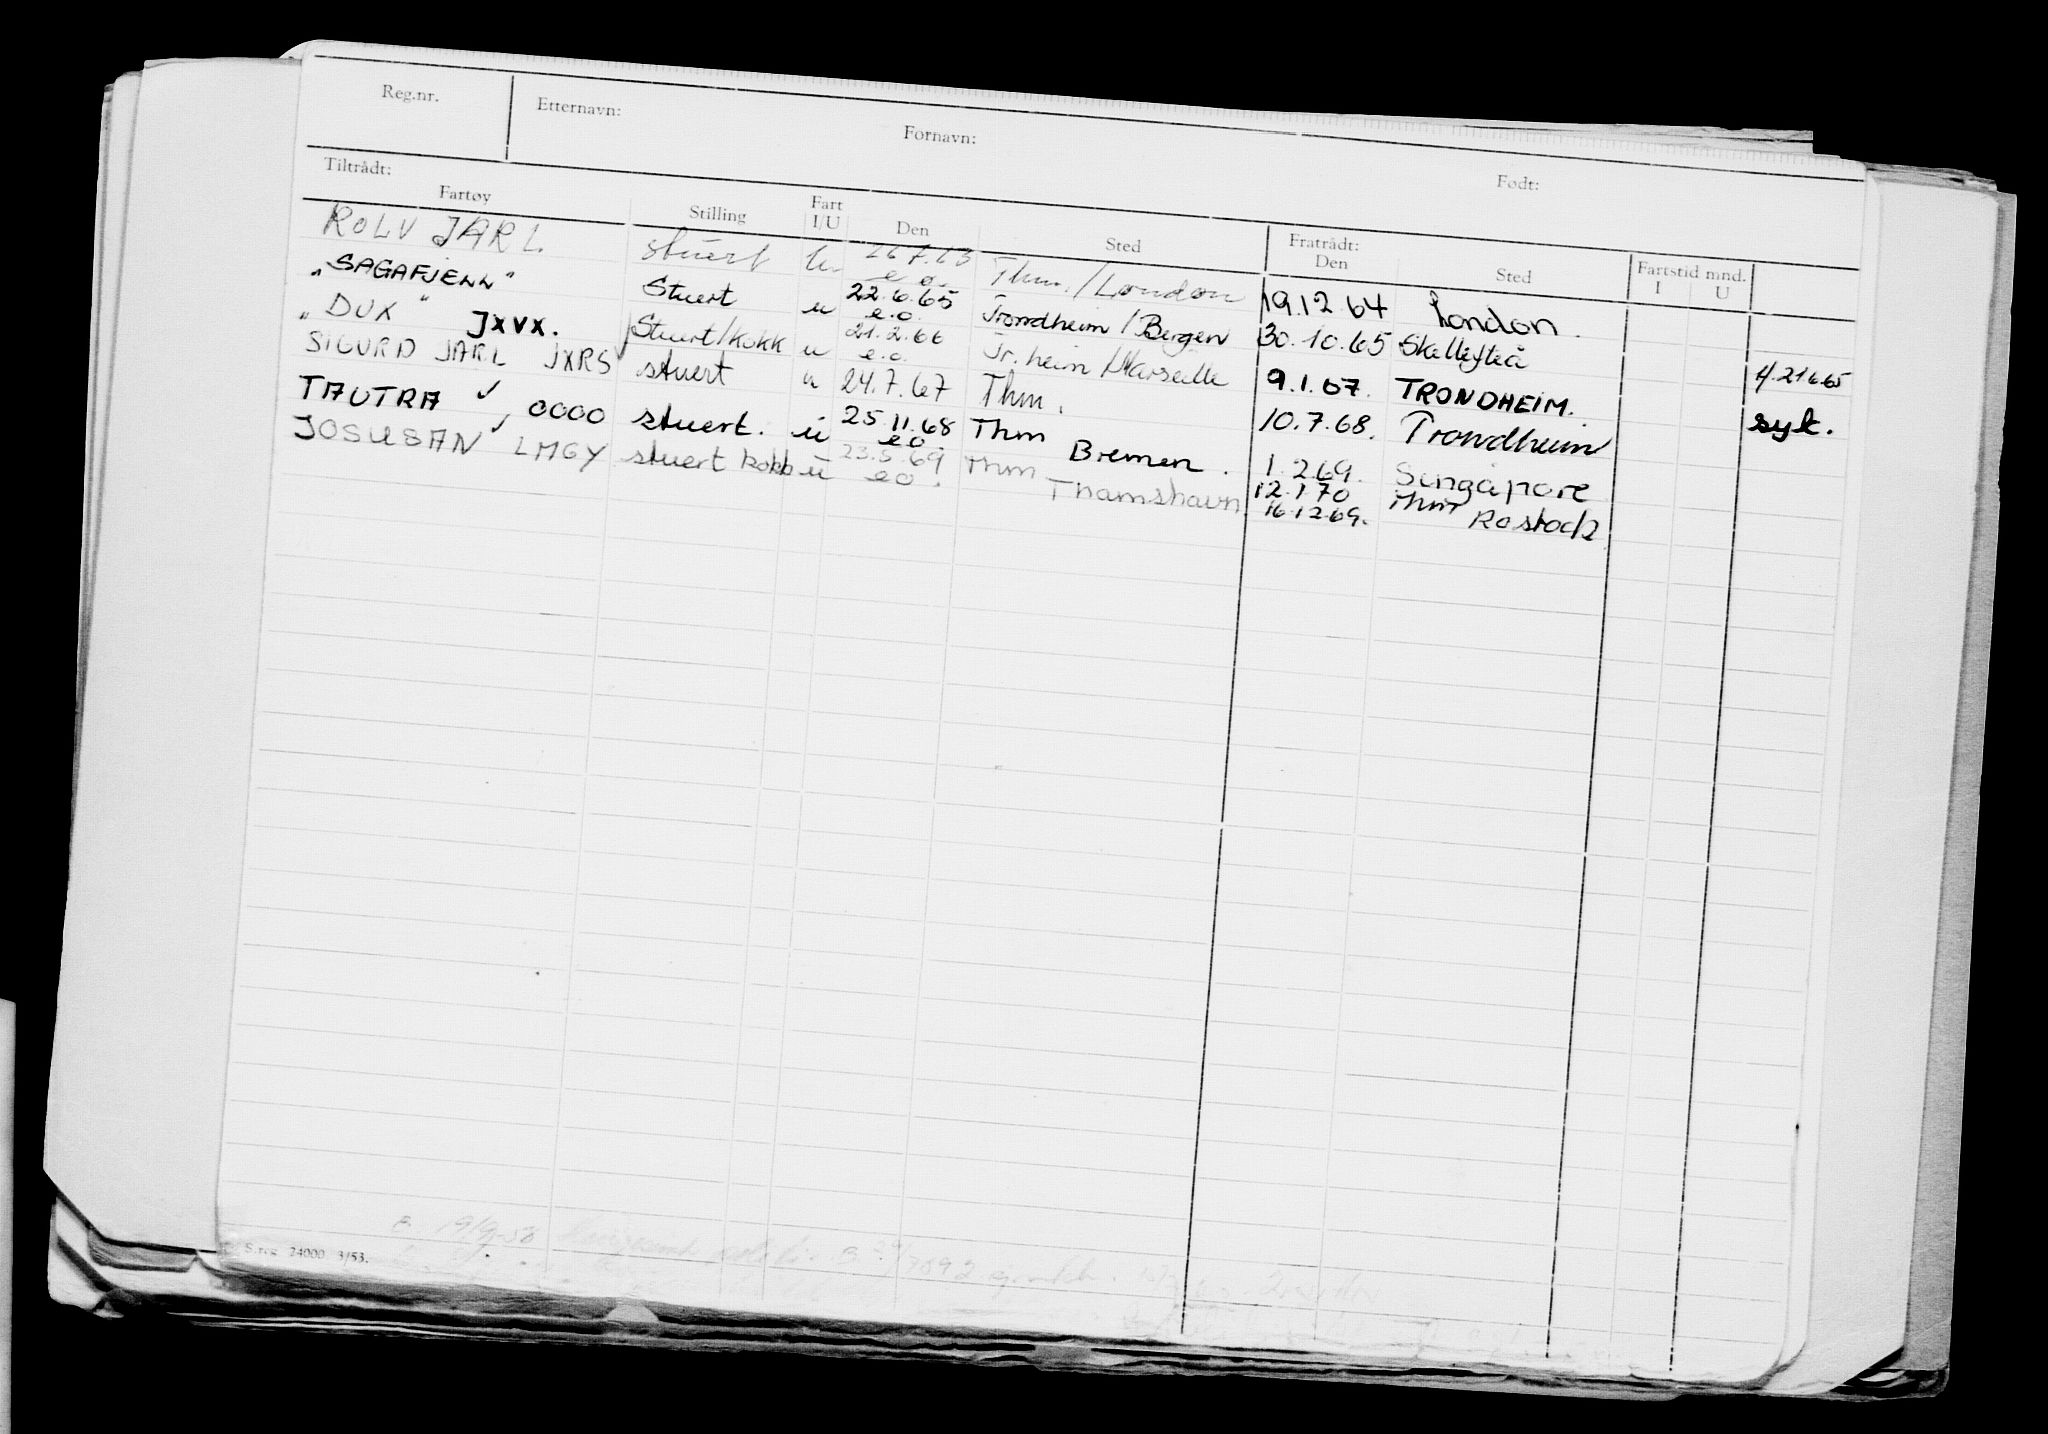 Reg.nr. Etternavn: Fornavn: Født:
Tiltrådt: Fratrådt: Fartstid mnd.
Fartøy Stilling Fart I/U Den Sted Den Sted I U
ROLV JARL. stuert u. 26.7.63 e.o. Thm./London 19.12.64 London.
"SAGAFJELL" Stuert u 22.6.65 e.o. Trondheim/Bergen 30.10.65 Skellefteå 4.21.6.65
"DUX" JXVX. Stuert/kokk u 21.2.66 e.o. Tr.heim/Marseille 9.1.67. TRONDHEIM. syk.
SIGURD JARL JXRS stuert u 24.7.67 Thm. 10.7.68. Trondheim
TAUTRA ✓, 0000 stuert. u 25.11.68 e.o. Thm Bremen. 1.2.69. Singapore
JOSUSAN ✓ LMGY stuert kokk u 23.5.69 e.o. Thm Thamshavn 12.1.70 Thm
16.12.69. Rostock
B. 19/9-58
S.reg 24000 3/53.